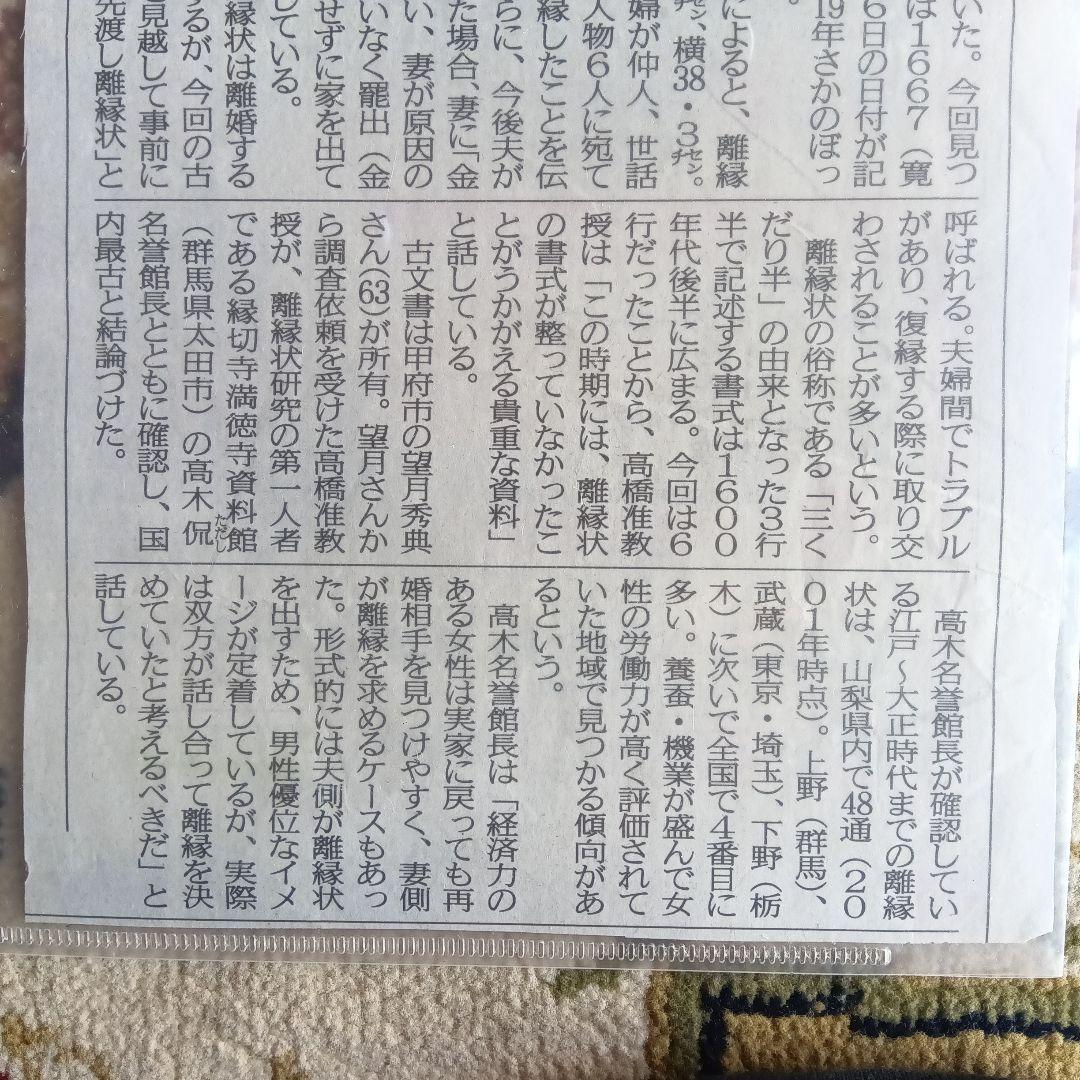 いた。今回見つ
は１６６７（寛
６日の日付が記
19年さかのぼっ
。
によると、離縁
㌢、横38・３㌢。
婦が仲人、世話
人物６人に宛て
縁したことを伝
らに、今後夫が
た場合、妻に「金
い、妻が原因の
いなく罷出（金
せずに家を出て
している。
縁状は離婚する
るが、今回の古
見越して事前に
先渡し離縁状」と
呼ばれる。夫婦間でトラブル
があり、復縁する際に取り交
わされることが多いという。
離縁状の俗称である「三く
だり半」の由来となった３行
半で記述する書式は１６００
年代後半に広まる。今回は６
行だったことから、高橋准教
授は「この時期には、離縁状
の書式が整っていなかったこ
とがうかがえる貴重な資料」
と話している。
古文書は甲府市の望月秀典
さん（63）が所有。望月さんか
ら調査依頼を受けた高橋准教
授が、離縁状研究の第一人者
である縁切寺満徳寺資料館
（群馬県太田市）の高木侃（ただし）
名誉館長とともに確認し、国
内最古と結論づけた。
高木名誉館長が確認してい
る江戸～大正時代までの離縁
状は、山梨県内で48通（２０
０１年時点）。上野（群馬）、
武蔵（東京・埼玉）、下野（栃
木）に次いで全国で４番目に
多い。養蚕・機業が盛んで女
性の労働力が高く評価されて
いた地域で見つかる傾向があ
るという。
高木名誉館長は「経済力の
ある女性は実家に戻っても再
婚相手を見つけやすく、妻側
が離縁を求めるケースもあっ
た。形式的には夫側が離縁状
を出すため、男性優位なイメ
ージが定着しているが、実際
は双方が話し合って離縁を決
めていたと考えるべきだ」と
話している。